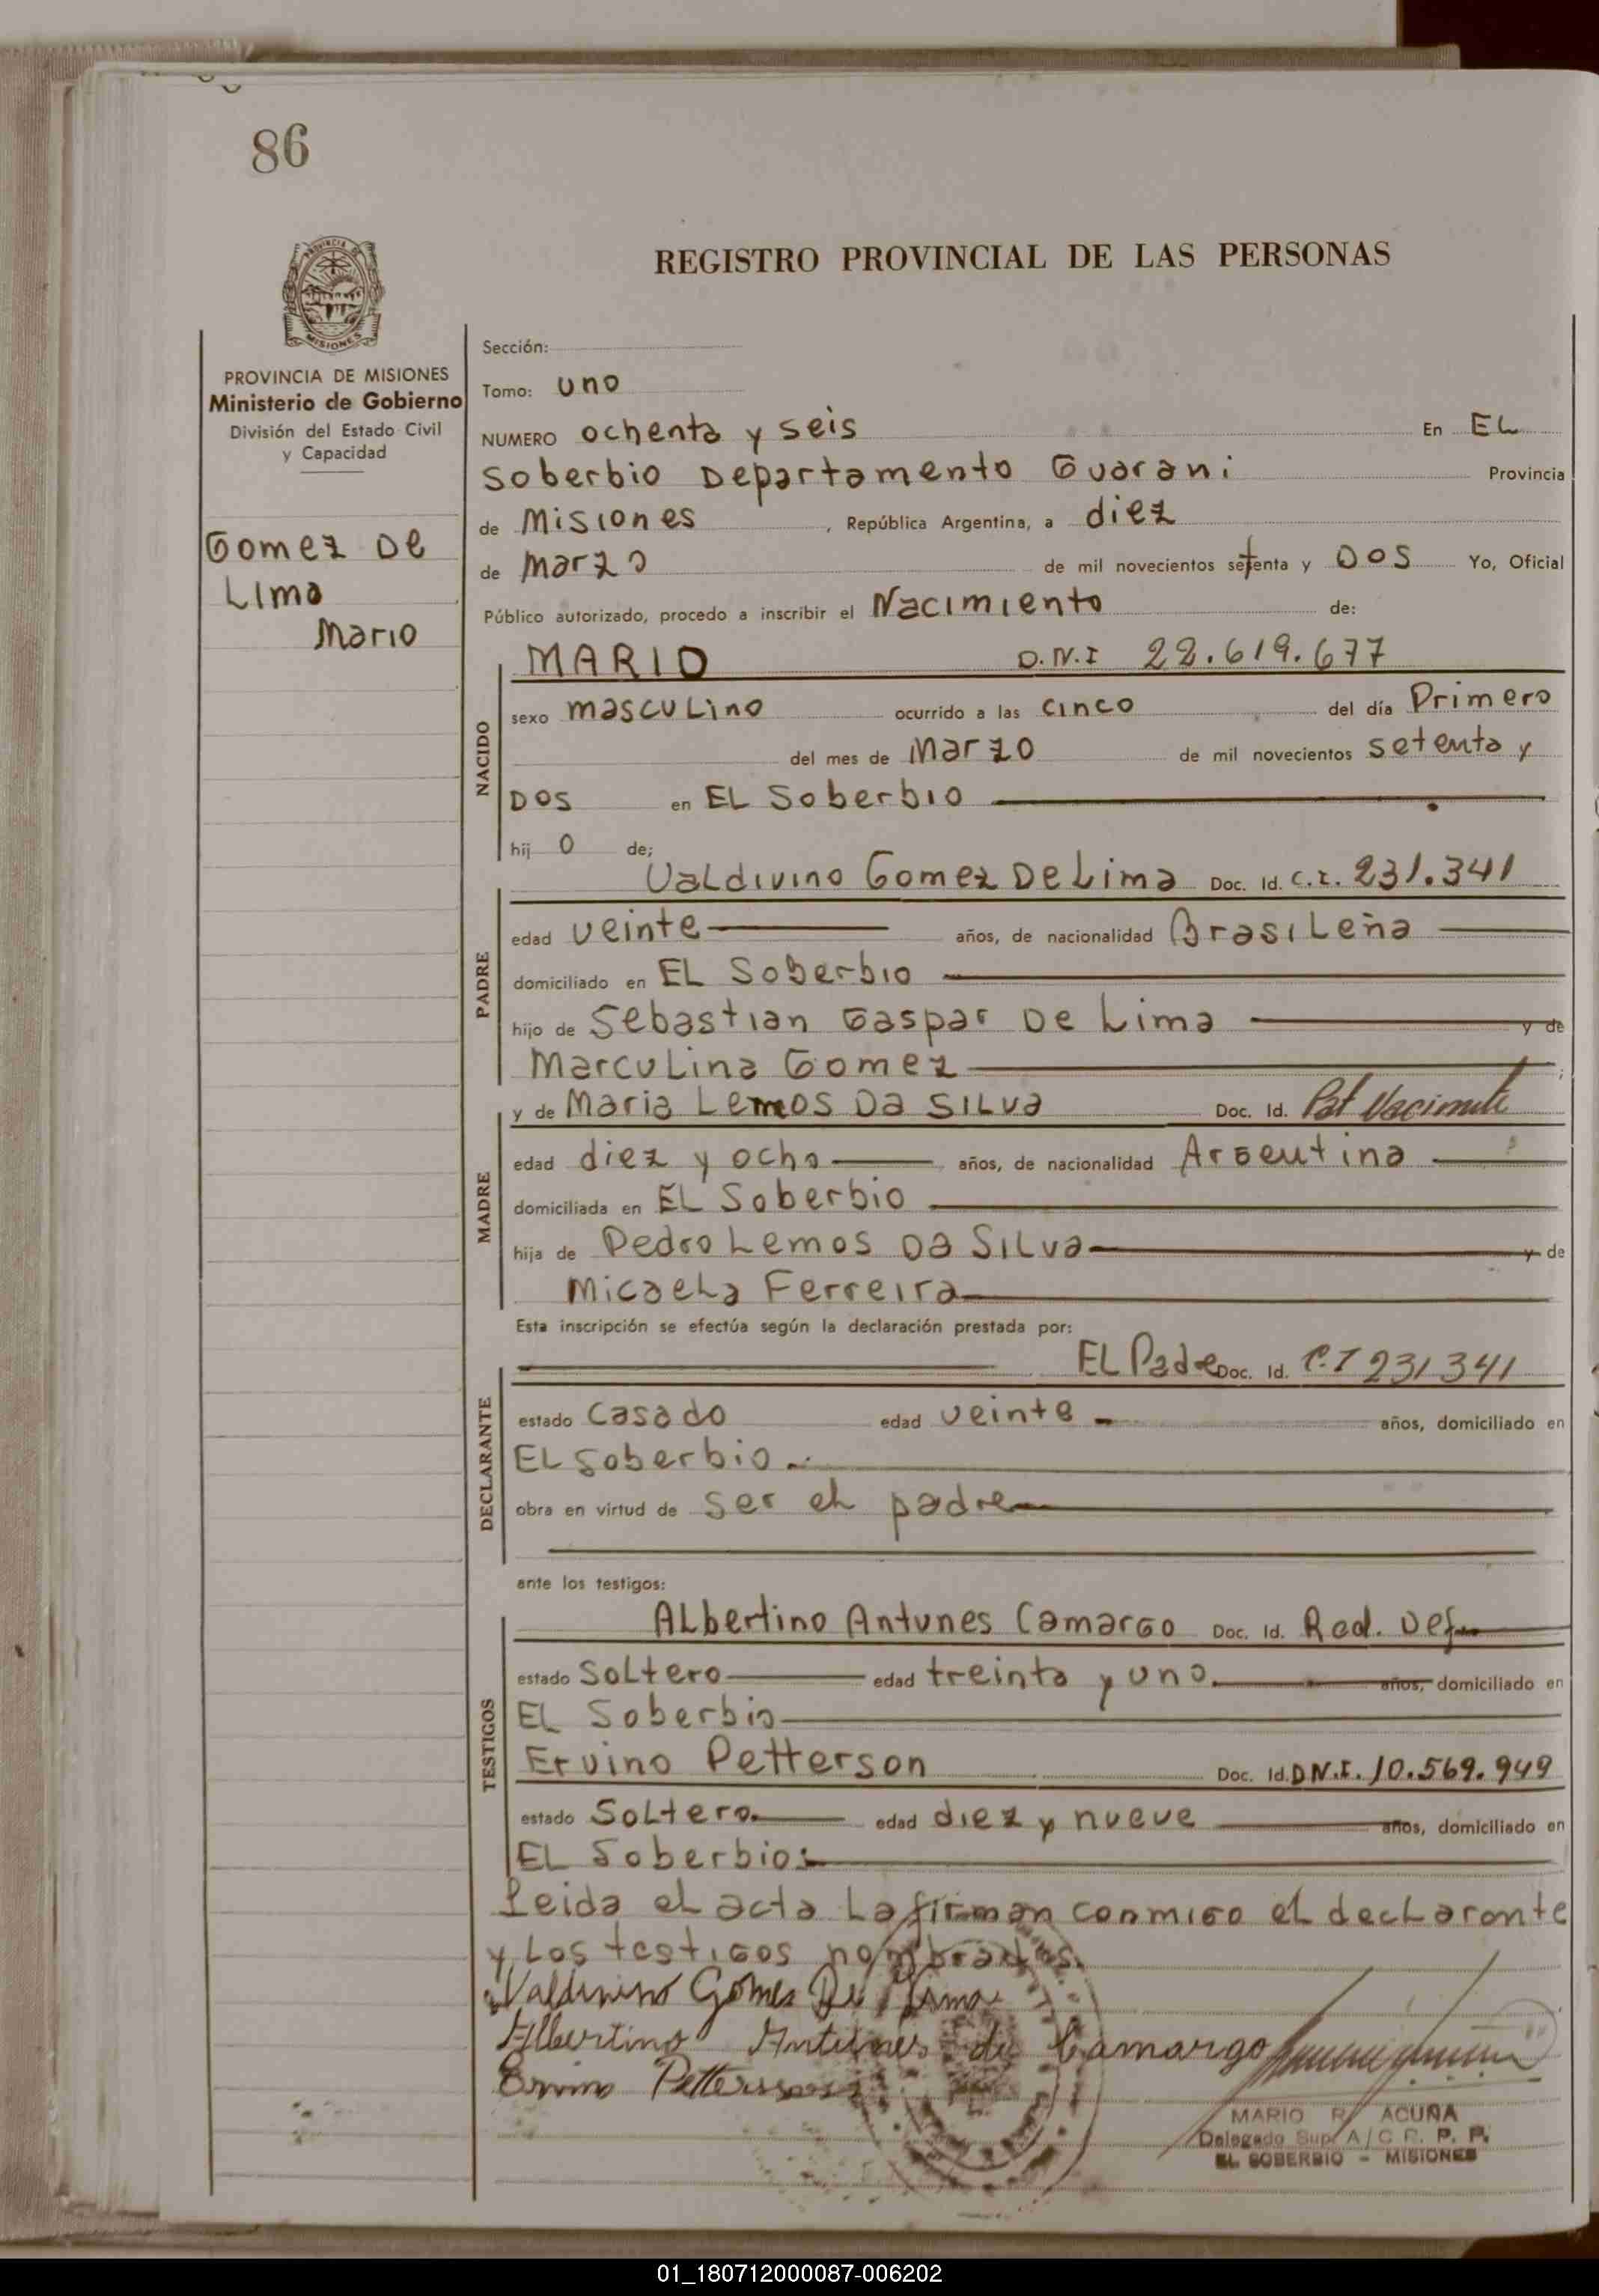 86
PROVINCIA DE
MISIONES
REGISTRO PROVINCIAL DE LAS PERSONAS
PROVINCIA DE MISIONES
Ministerio de Gobierno
División del Estado Civil
y Capacidad
Gomez De
Lima
Mario
Sección:
Tomo: uno
NUMERO ochenta y seis En EL
Soberbio Departamento Guarani Provincia
de Misiones , República Argentina, a diez
de marzo de mil novecientos setenta y DOS Yo, Oficial
Público autorizado, procedo a inscribir el Nacimiento de:
NACIDO
MARIO D.N.I 22.619.677
sexo masculino ocurrido a las cinco del día Primero
del mes de Marzo de mil novecientos setenta y
DOS en EL Soberbio
hij o de;
PADRE
Valdivino Gomez De Lima Doc. Id. C.I. 231.341
edad veinte años, de nacionalidad Brasileña
domiciliado en EL Soberbio
hijo de Sebastian Gaspar De Lima y de
Marculina Gomez ;
MADRE
y de Maria Lemos Da Silva Doc. Id. Nacimiento
edad diez y ocho años, de nacionalidad Argentina
domiciliada en EL Soberbio
hija de Pedro Lemos Da Silva y de
Micaela Ferreira
Esta inscripción se efectúa según la declaración prestada por:
DECLARANTE
EL Padre Doc. Id. C.I 231341
estado casado edad veinte años, domiciliado en
EL Soberbio
obra en virtud de ser el padre
ante los testigos:
TESTIGOS
Albertino Antunes Camargo Doc. Id. Red. Def
estado Soltero edad treinta y uno años, domiciliado en
EL Soberbio
Ervino Petterson Doc. Id. D.N.I. 10.569.949
estado Soltero edad diez y nueve años, domiciliado en
EL Soberbio
Leida el acta la firman conmigo el declarante
y los testigos nombrados
Valdivino Gomes De Lima
Albertino Antunes de Camargo
Ervino Petterson
MARIO R. ACUÑA
Delegado Sup. A/C R. P. P.
EL SOBERBIO - MISIONES
01_180712000087-006202